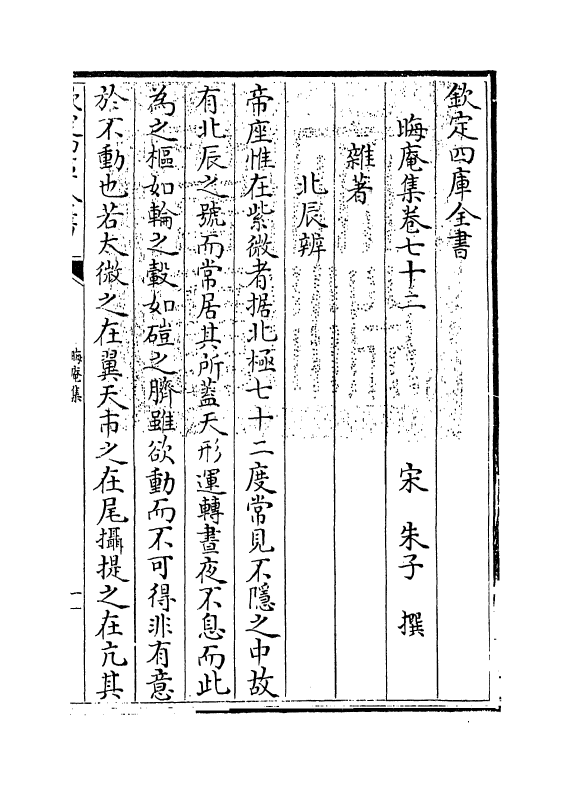 欽定四庫全書
晦庵集卷七十二
宋 朱子 撰
雜著
北辰辨
帝座惟在紫微者据北極七十二度常見不隱之中故
有北辰之號而常居其所蓋天形運轉晝夜不息而此
為之樞如輪之轂如磑之臍雖欲動而不可得非有意
於不動也若太微之在翼天市之在尾攝提之在亢其
晦庵集